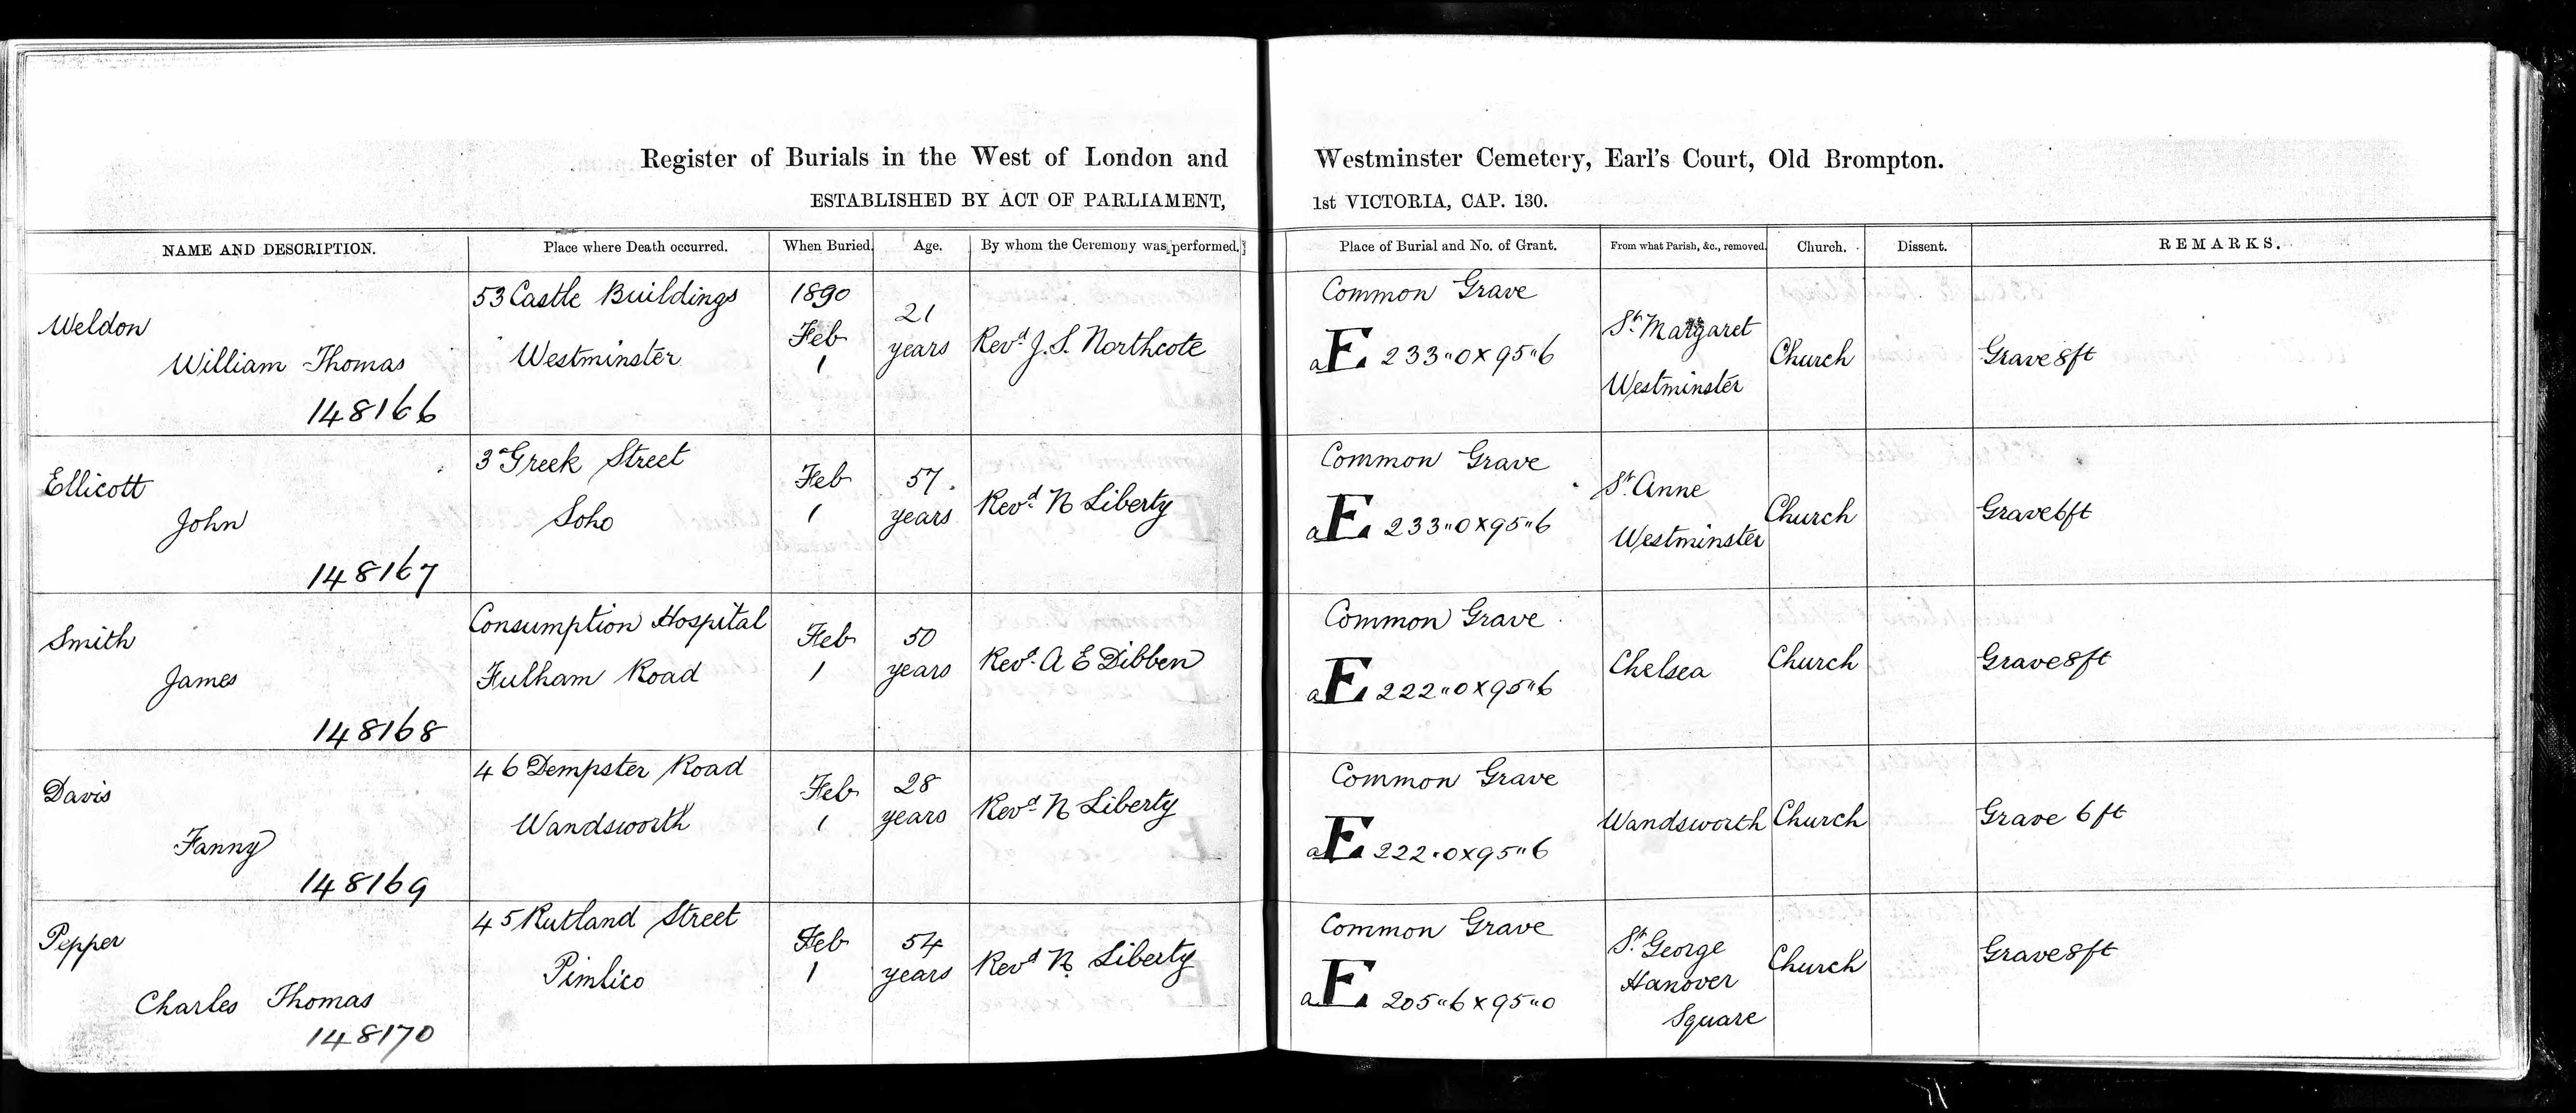 Register of Burials in the West of London and Westminster Cemetery, Earl's Court, Old Brompton.
ESTABLISHED BY ACT OF PARLIAMENT, 1st VICTORIA, CAP. 130.
NAME AND DESCRIPTION. Place where Death occurred. When Buried. Age. By whom the Ceremony was performed. Place of Burial and No. of Grant. From what Parish, &c., removed. Church. Dissent. REMARKS.
Weldon
William Thomas
148166
53 Castle Buildings
Westminster
1890
Feb
1
21
years
Revd J. S. Northcote
Common Grave
aE 233"0 x 95"6
St Margaret
Westminster
Church
Grave 8ft
Ellicott
John
148167
3a Greek Street
Soho
Feb
1
57
years
Revd N Liberty
Common Grave
aE 233"0 x 95"6
St Anne
Westminster
Church
Grave 6ft
Smith
James
148168
Consumption Hospital
Fulham Road
Feb
1
50
years
Revd A E Dibben
Common Grave
aE 222"0 x 95"6
Chelsea
Church
Grave 8ft
Davis
Fanny
148169
46 Dempster Road
Wandsworth
Feb
1
28
years
Revd N Liberty
Common Grave
aE 222"0 x 95"6
Wandsworth
Church
Grave 6ft
Pepper
Charles Thomas
148170
45 Rutland Street
Pimlico
Feb
1
54
years
Revd N Liberty
Common Grave
aE 205"6 x 95"0
St George
Hanover
Square
Church
Grave 8ft